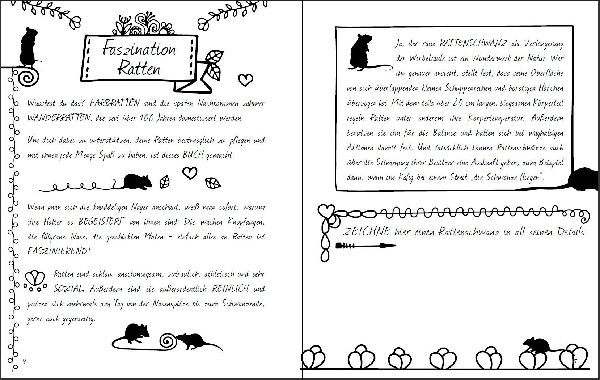 Faszination
Ratten
Wusstest du, dass FARBRATTEN sind die späten Nachkommen zahmer
WANDERRATTEN, die seit über 100 Jahren domestiziert werden.
Um dich dabei zu unterstützen, deine Ratten bestmöglich zu pflegen und
mit ihnen jede Menge Spaß zu haben, ist dieses BUCH gemacht.
Wenn man sich die knuddeligen Nager anschaut, weiß man sofort, warum
ihre Halter so BEGEISTERT von ihnen sind: Die wachen Knopfaugen,
die Nase, die geschickten Pfoten - einfach alles an Ratten ist
FASZINIEREND!
Ratten sind schlau, anschmiegsam, zutraulich, athletisch und sehr
SOZIAL. Außerdem sind sie außerordentlich REINLICH und
putzen sich mehrmals am Tag von der Nasenspitze bis zum Schwanzende,
gerne auch gegenseitig.
4
Ja, der RATTENSCHWANZ als Verlängerung
der Wirbelsäule ist ein Wunderwerk der Natur. Wer
ihn genauer ansieht, stellt fest, dass seine Oberfläche
von sich überlappenden kleinen Schuppenreihen und borstigen Härchen
überzogen ist. Mit dem teils über 20 cm langen, biegsamen Körperteil
regeln Ratten unter anderem ihre Körpertemperatur. Außerdem
benutzen sie ihn für die Balance und halten sich bei waghalsigen
Aktionen damit fest. Und tatsächlich können Rattenschwänze auch
über die Stimmung ihrer Besitzer eine Auskunft geben, zum Beispiel
dann, wenn sie bei einem Streit
ZEICHNE hier einen Rattenschwanz in all seinen Details.